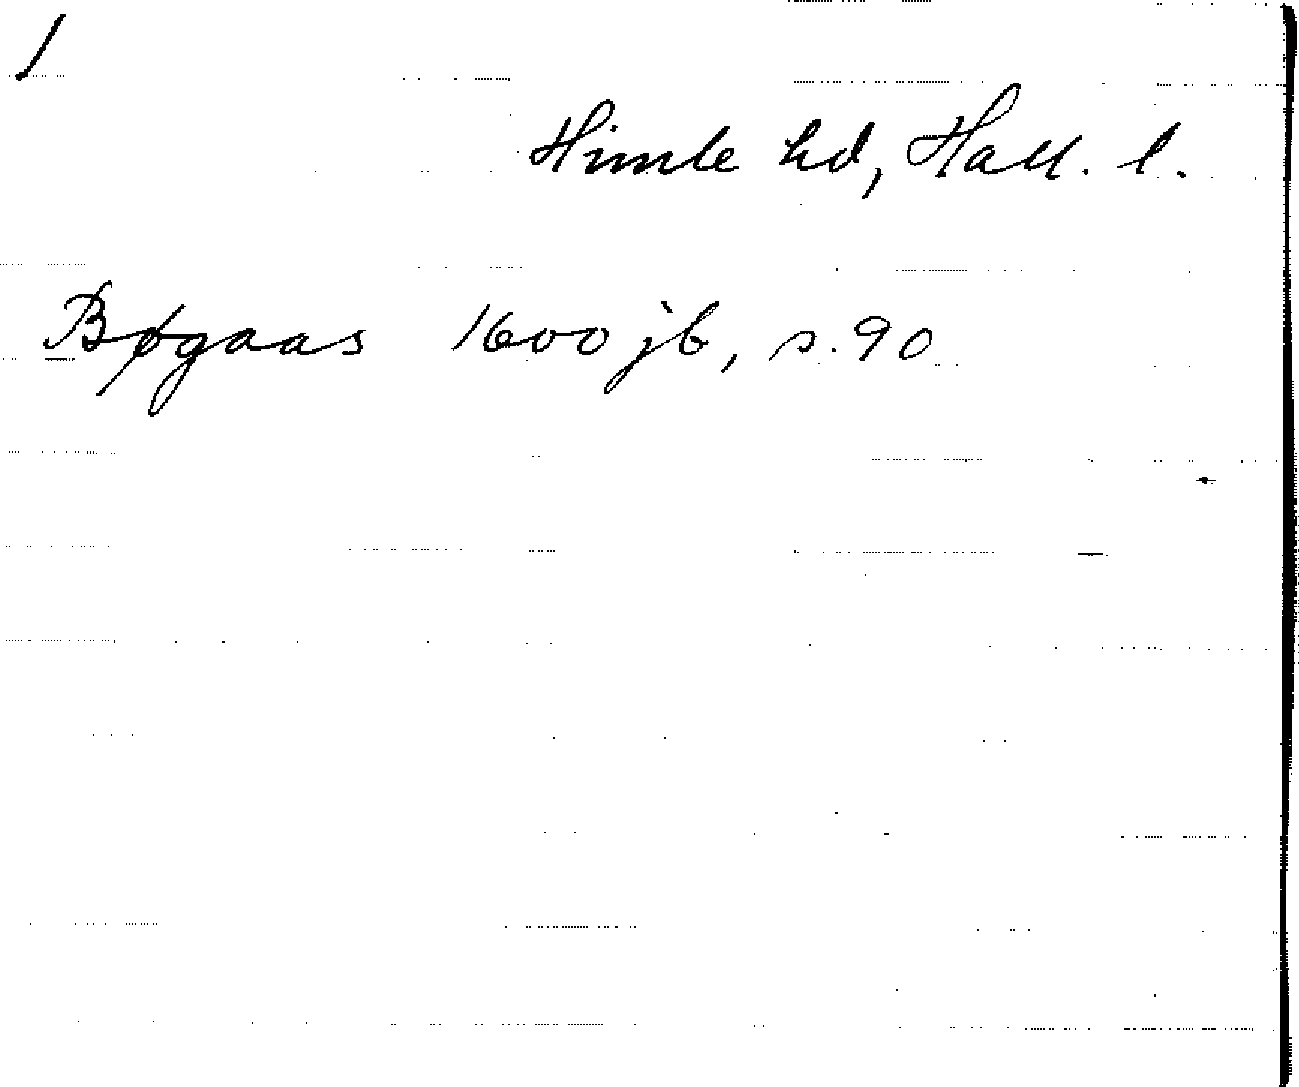 1
Himle hd, Hall. l.
Bøgaas 1600 jb, s. 90